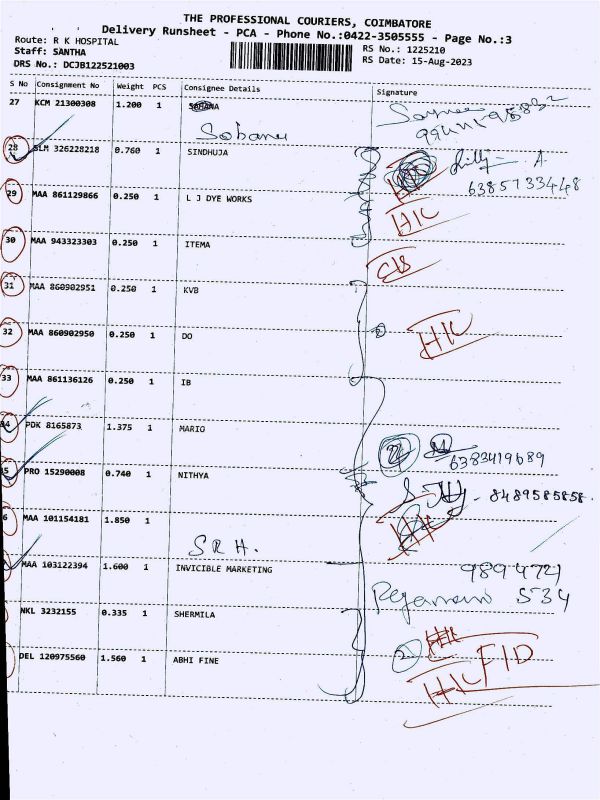 THE PROFESSIONAL COURIERS, COIMBATORE
Delivery Runsheet - PCA - Phone No.:0422-3505555 - Page No.:3
Route: R K HOSPITAL
RS No.: 1225210
Staff: SANTHA
RS Date: 15-Aug-2023
DRS No.: DCJB122521003
S No Consignment No Weight PCS Consignee Details Signature
27 KCM 21300308 1.200 1 SOHANA
Sobana
28 SLM 326228218 0.760 1 SINDHUJA
6385733448
29 MAA 861129866 0.250 1 L J DYE WORKS HIC
30 MAA 943323303 0.250 1 ITEMA
31 MAA 860902951 0.250 1 KVB
32 MAA 860902950 0.250 1 DO HIC
33 MAA 861136126 0.250 1 IB
34 PDK 8165873 1.375 1 MARIO
6383419689
35 PRO 15290008 0.740 1 NITHYA
8489585858
6 MAA 101154181 1.850 1
S R H.
MAA 103122394 1.600 1 INVICIBLE MARKETING
9894721
534
NKL 3232155 0.335 1 SHERMILA
DEL 120975560 1.560 1 ABHI FINE
HIC FID